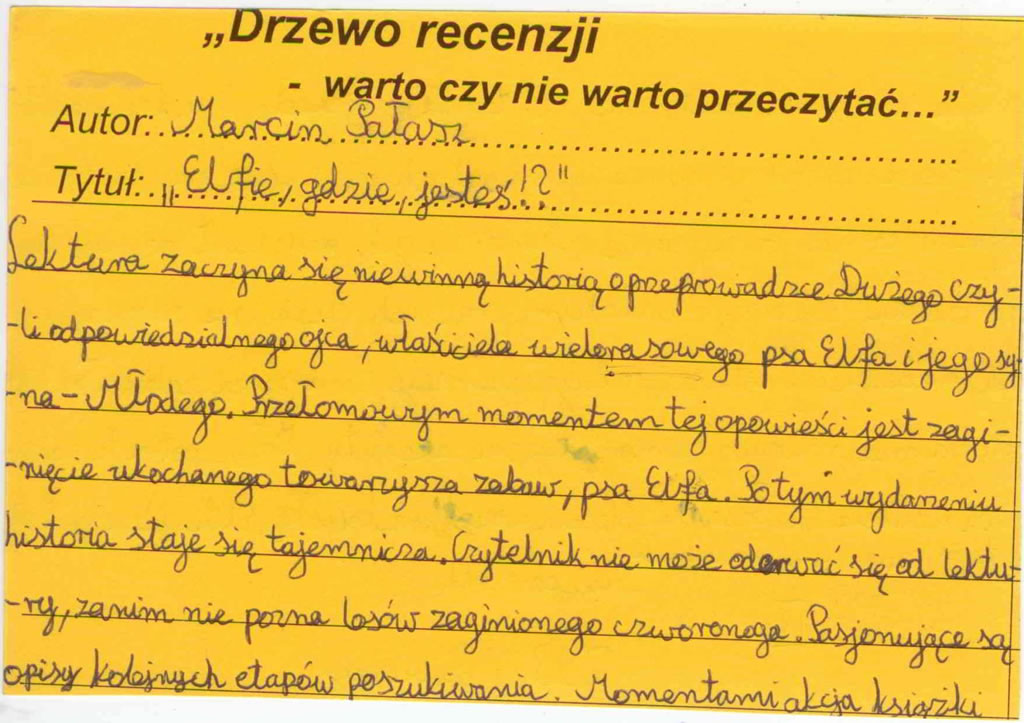 „Drzewo recenzji
- warto czy nie warto przeczytać...”
Autor: Marcin Pałasz
Tytuł: „Elfie, gdzie, jesteś!?"
Lektura zaczyna się niewinną historią o przeprowadzce Dużego czy-
-li odpowiedzialnego ojca, właściciela wielorasowego psa Elfa i jego sy-
-na - Młodego. Przełomowym momentem tej opowieści jest zagi-
-nięcie ukochanego towarzysza zabaw, psa Elfa. Po tym wydarzeniu
historia staje się tajemnicza. Czytelnik nie może oderwać się od lektu-
-ry, zanim nie pozna losów zaginionego czworonoga. Pasjonujące są
opisy kolejnych etapów poszukiwania. Momentami akcja książki